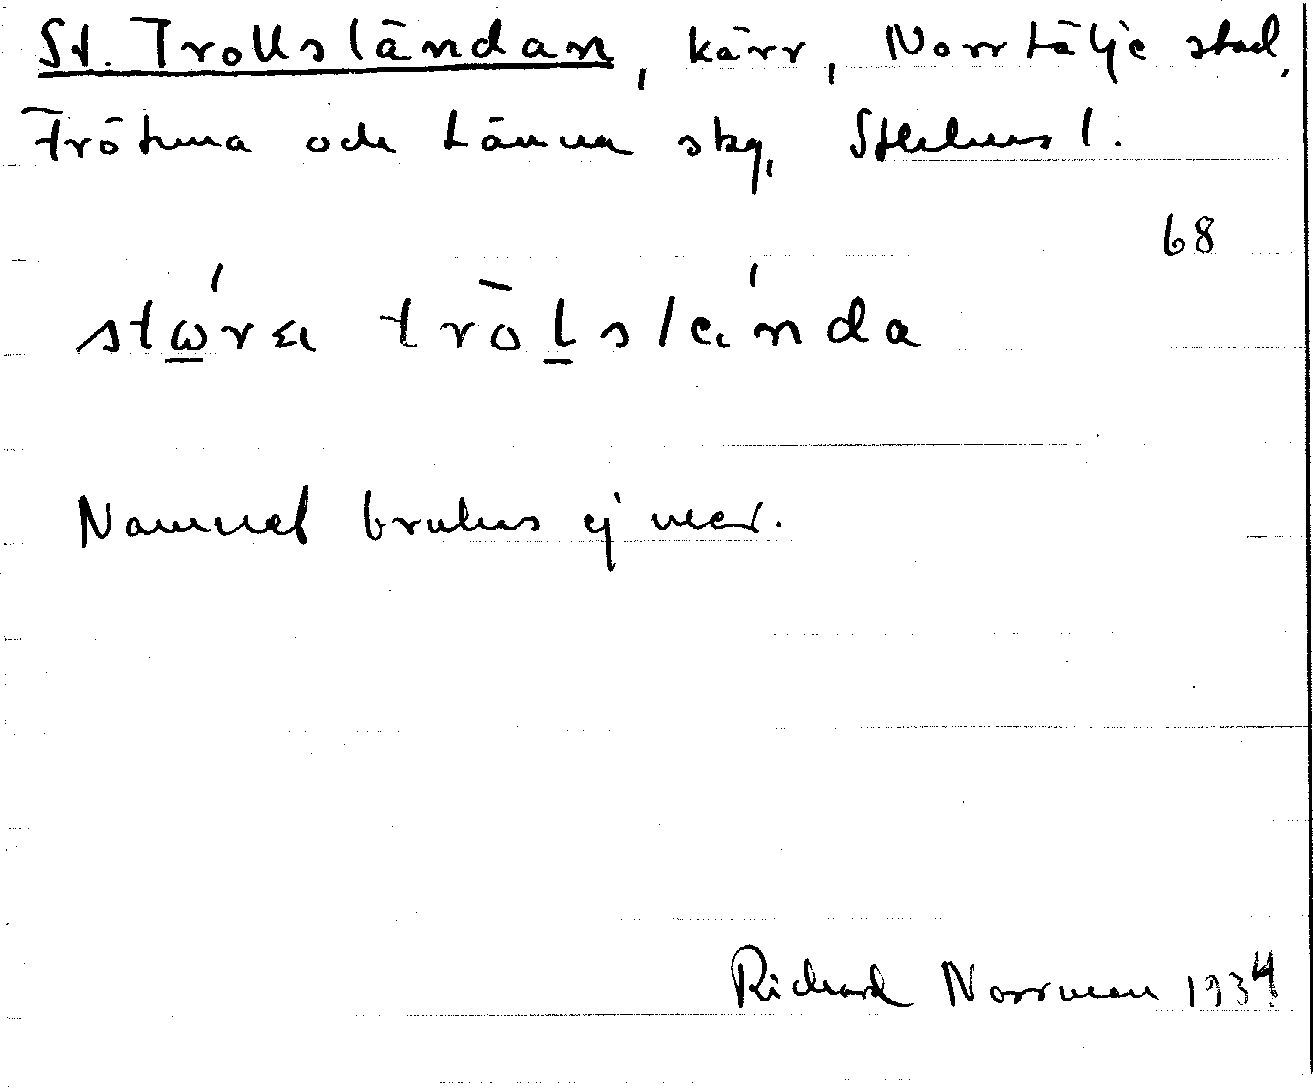 St. Trollsländan, kärr, Norrtälje stad,
Frötuna och Länna skg, Sthlms l.
68
Namnet brukas ej mer.
Richard Norrman 1934